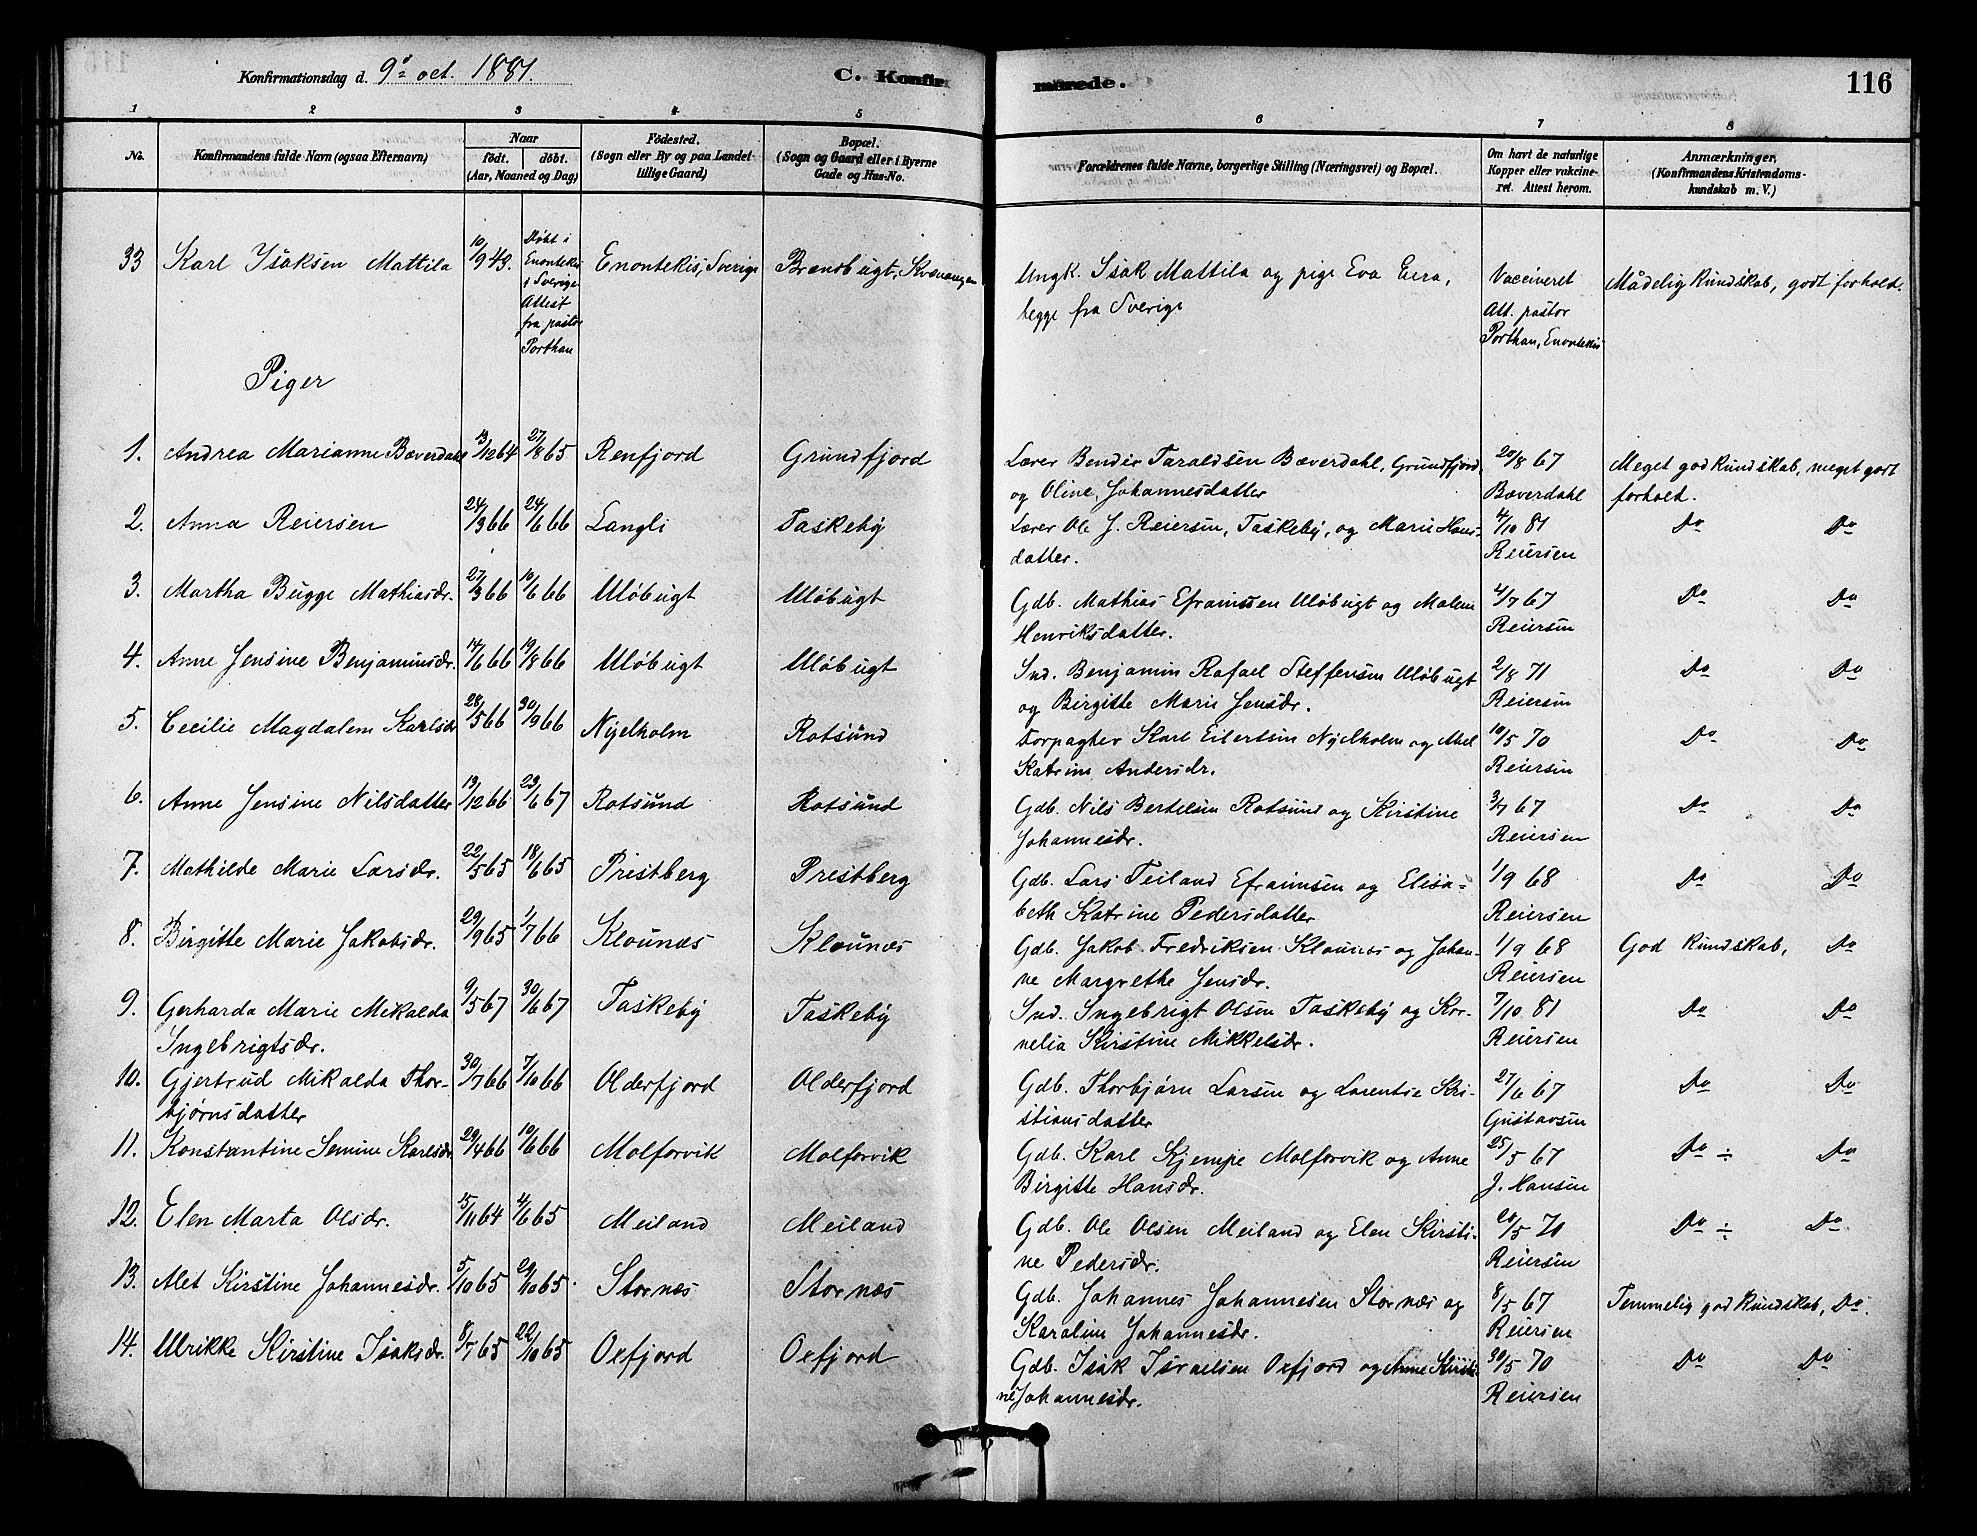 Konfirmationsdag d. 9de oct. 1881.
C. Konfir
merede.
116
1 2 3 4 5 6 7 8
No.
Konfirmandens fulde Navn (ogsaa Efternavn)
Naar
født. døbt.
(Aar, Maaned og Dag)
Fødested.
(Sogn eller By og paa Landet
tillige Gaard)
Bopæl.
(Sogn og Gaard eller i Byerne
Gade og Hus-No.
Forældrenes fulde Navne, borgerlige Stilling (Næringsvei) og Bopæl.
Om havt de naturlige
Kopper eller vakcine-
ret. Attest herom.
Anmærkninger,
(Konfirmandens Kristendoms-
kundskab m. V.)
33 Karl Isaksen Mattila 10/9 43. Døbt i Enontekis, Sverige Brændbugt, Kvænangen Ungk. Isak Mattila og pige Eva Eira, Vacciveret Mådelig kundskab, godt forhold.
Enontekis begge fra Sverige Att. pastor
i Sverige Porthan, Enontekis
Attest
fra pastor
Porthan
Piger
1. Andrea Marianne Bæverdahl 13/12 64 27/8 65 Renfjord Grundfjord Lærer Bendix Taraldsen Bæverdahl, Grundfjord, 20/8 67 Meget god kundskab, meget godt
og Oline Johannesdatter Bæverdahl forhold.
2. Anna Reiersen 24/3 66 24/6 66 Langli Taskeby Lærer Ole J. Reiersen, Taskeby, og Marie Hans- 4/10 81 Do Do
datter. Reiersen
3. Martha Bugge Mathiasdr. 27/3 66 10/6 66 Uløbugt Uløbugt Gdb. Mathias Efraimsen Uløbugt og Malene 4/7 67 Do Do
Henriksdatter. Reiersen
4. Anne Jensine Benjaminsdr. 14/6 66 19/8 66 Uløbugt Uløbugt Ind. Benjamin Rafael Steffensen Uløbugt 2/8 71 Do Do
og Birgitte Marie Jensdr. Reiersen
5. Cecilie Magdalene Karlsdr 28/5 66 30/9 66 Njelholm Rotsund Forpagter Karl Eilertsen Njelholm og Abel 10/5 70 Do Do
Katrine Andersdr. Reiersen
6. Anne Jensine Nilsdatter 13/12 66 23/6 67 Rotsund Rotsund Gdb. Nils Bertelsen Rotsund og Kirstine 3/7 67 Do Do
Johannesdr. Reiersen
7. Mathilde Marie Larsdr. 22/5 65 18/6 65 Prestberg Prestberg Gdb. Lars Teiland Efraimsen og Elisa- 1/9 68 Do Do
beth Katrine Pedersdatter Reiersen
8. Birgitte Marie Jakobsdr. 29/9 65 1/7 66 Klounæs Klounæs Gdb. Jakob Fredriksen Klounæs og Johan- 1/9 68 God kundskab, Do
ne Margrethe Jensdr. Reiersen
9. Gerharda Marie Mikalda 9/5 67 30/6 67 Taskeby Taskeby Ind. Ingebrigt Olsen Taskeby og Kor- 7/10 81 Do Do
Ingebrigtsdr. nelia Kirstine Mikkelsdr. Reiersen
10. Gjertrud Mikalda Thor- 30/7 66 7/10 66 Olderfjord Olderfjord Gdb. Thorbjørn Larsen og Lorentse Kri- 27/6 67 Do Do
bjørnsdatter stiansdatter Gustavsen
11. Konstantine Semine Karlsdr. 29/4 66 10/6 66 Molforvik Molforvik Gdb. Karl Kjempe Molforvik og Anne 25/5 67 Do ÷ Do
Birgitte Hansdr. J. Hansen
12. Elen Marta Olsdr. 15/11 64 4/6 65 Meiland Meiland Gdb. Ole Olsen Meiland og Elen Kirsti- 20/5 70 Do ÷ Do
ne Pedersdr. Reiersen
13. Alet Kirstine Johannesdr. 5/10 65 29/10 65. Stornæs Stornæs Gdb. Johannes Johannesen Stornæs og 8/5 67 Temmelig god kundskab, Do.
Karoline Johannesdr. Reiersen
14. Ulrikke Kirstine Isaksdr. 8/7 65 22/10 65 Oxfjord Oxfjord Gdb. Isak Israelsen Oxfjord og Anne Kirsti- 30/5 70 Do Do
ne Johannesdr. Reiersen